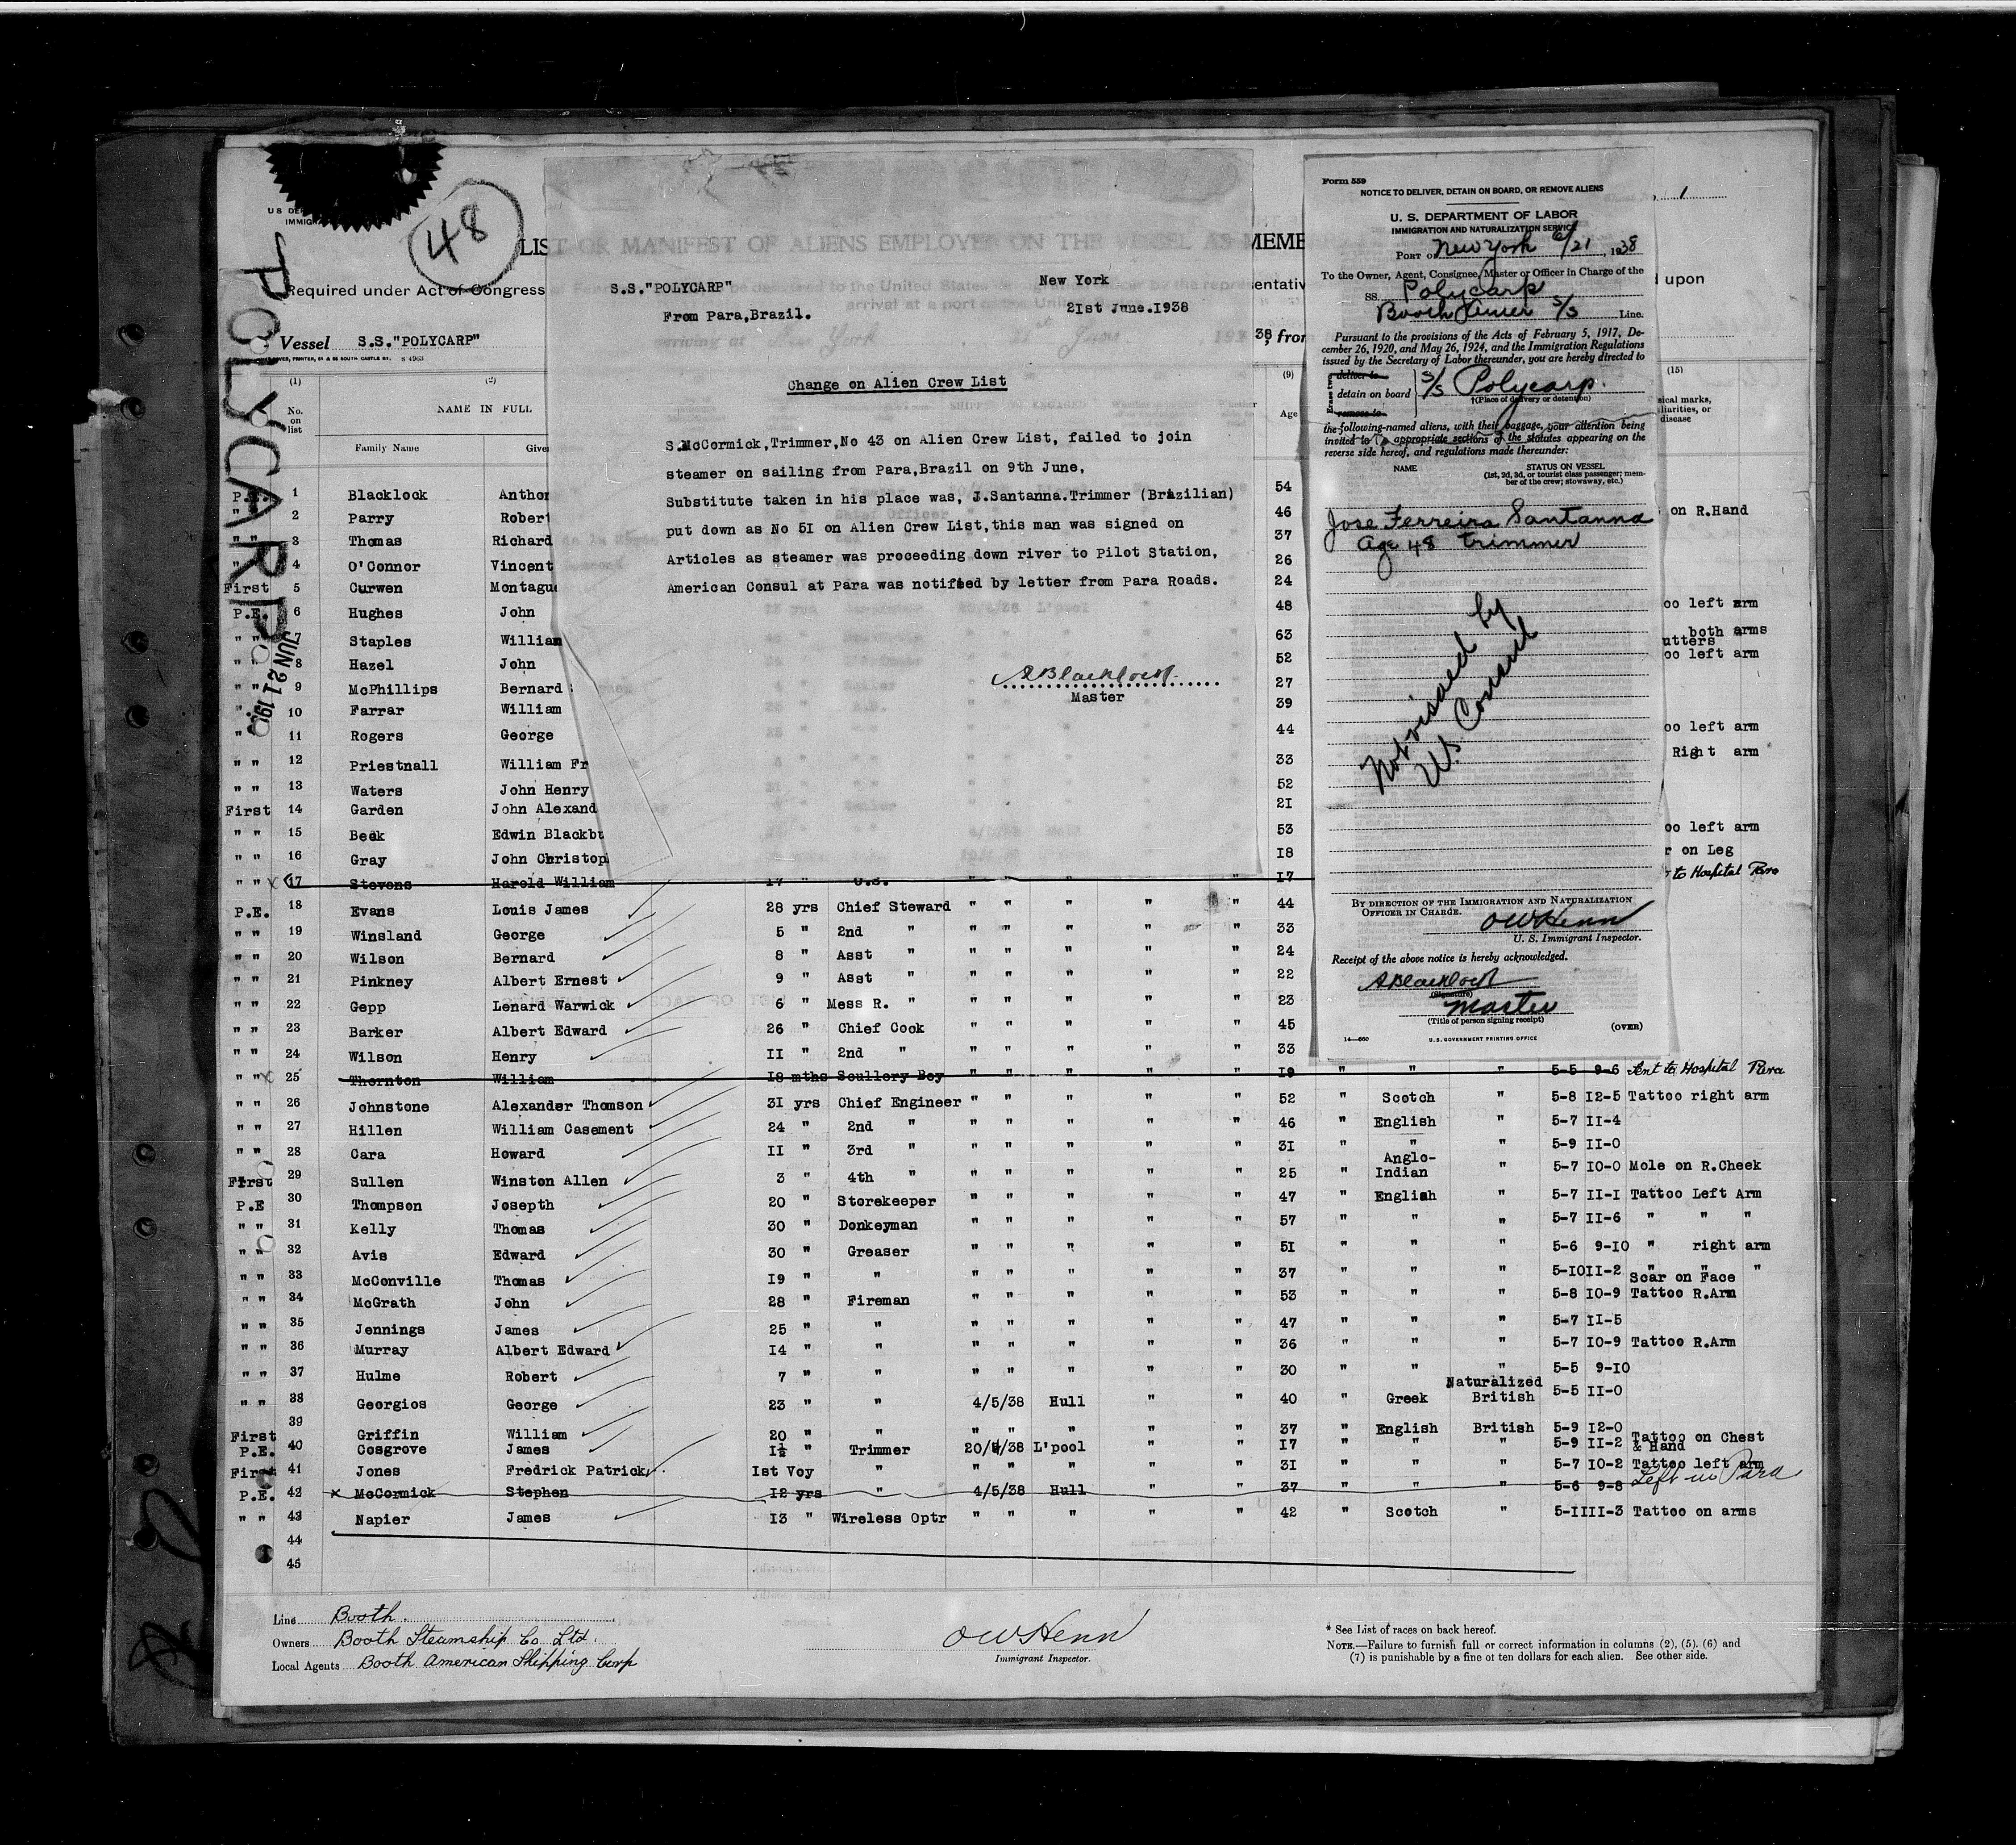 48
POLYCARP
JUN 21 19
U S DE
IMMIG
LIST OR MANIFEST OF ALIENS EMPLOYED ON THE VESSEL AS MEMBE
Required under Act of Congress
sentativ
d upon
1
Vessel S.S."POLYCARP"
38, from
(1) (2) (9) (15)
No. on list
NAME IN FULL
Age
sical marks,
liarities, or
disease
Family Name Give
S.S."POLYCARP" New York
From Para,Brazil. 21st June.1938
Change on Alien Crew List
S.McCormick,Trimmer,No 43 on Alien Crew List, failed to join
steamer on sailing from Para,Brazil on 9th June,
Substitute taken in his place was, J.Santanna.Trimmer (Brazilian)
put down as No 51 on Alien Crew List,this man was signed on
Articles as steamer was proceeding down river to Pilot Station,
American Consul at Para was notified by letter from Para Roads.
ABlacklock
Master
Form 559
NOTICE TO DELIVER, DETAIN ON BOARD, OR REMOVE ALIENS
U. S. DEPARTMENT OF LABOR
IMMIGRATION AND NATURALIZATION SERVICE
PORT OF New York 6/21, 1938
To the Owner, Agent, Consignee, Master or Officer in Charge of the
SS. Polycarp
Booth Line.
Pursuant to the provisions of the Acts of February 5, 1917, De-
cember 26, 1920, and May 26, 1924, and the Immigration Regulations
issued by the Secretary of Labor thereunder, you are hereby directed to
Erase two
deliver to
detain on board S/S Polycarp.
remove to
†(Place of delivery or detention)
the following-named aliens, with their baggage, your attention being
invited to appropriate sections of the statutes appearing on the
reverse side hereof, and regulations made thereunder:
NAME STATUS ON VESSEL
(1st, 2d, 3d, or tourist class passenger; mem-
ber of the crew; stowaway, etc.)
Jose Ferreira Santanna
Age 48 trimmer
Not visaed by
U.S. Consul
BY DIRECTION OF THE IMMIGRATION AND NATURALIZATION
OFFICER IN CHARGE.
OWHenn
U. S. Immigrant Inspector.
Receipt of the above notice is hereby acknowledged.
ABlacklock
(Signature)
Master
(Title of person signing receipt)
(OVER)
14—660 U.S. GOVERNMENT PRINTING OFFICE
P.E. 1 Blacklock Anthon 54
" " 2 Parry Robert 46 on R.Hand
" " 3 Thomas Richard 37
" 4 O'Connor Vincent 26
First 5 Curwen Montague 24
P.E. 6 Hughes John 48 oo left arm
" " 7 Staples William 63 both arms
utters
" " 8 Hazel John 52 oo left arm
" " 9 McPhillips Bernard 27
" 10 Farrar William 39
" 11 Rogers George 44 oo left arm
" " 12 Priestnall William Fr 33 Right arm
" " 13 Waters John Henry 52
First 14 Garden John Alexand 21
" " 15 Beck Edwin Blackbu 53 oo left arm
" " 16 Gray John Christop 18 r on Leg
" " x 17 Stevens Harold William 17 " O.S. " " " " 17 to Hospital Para
P.E. 18 Evans Louis James 28 yrs Chief Steward " " " " 44
" " 19 Winsland George 5 " 2nd " " " " " 33
" " 20 Wilson Bernard 8 " Asst " " " " " 24
" " 21 Pinkney Albert Ernest 9 " Asst " " " " " 22
" " 22 Gepp Lenard Warwick 6 " Mess R. " " " " " 23
" " 23 Barker Albert Edward 26 " Chief Cook " " " " 45
" " 24 Wilson Henry 11 " 2nd " " " " " 33
" " x 25 Thornton William 18 mths Scullery Boy " " " " 19 " " " 5-5 9-6 Sent to Hospital Para
" " 26 Johnstone Alexander Thomson 31 yrs Chief Engineer " " " " 52 " Scotch " 5-8 12-5 Tattoo right arm
" " 27 Hillen William Casement 24 " 2nd " " " " " 46 " English " 5-7 11-4
" " 28 Cara Howard 11 " 3rd " " " " " 31 " " " 5-9 11-0
First 29 Sullen Winston Allen 3 " 4th " " " " " 25 " Anglo-Indian " 5-7 10-0 Mole on R.Cheek
P.E 30 Thompson Josepth 20 " Storekeeper " " " " 47 " English " 5-7 11-1 Tattoo Left Arm
" " 31 Kelly Thomas 30 " Donkeyman " " " " 57 " " " 5-7 11-6 " " "
" " 32 Avis Edward 30 " Greaser " " " " 51 " " " 5-6 9-10 " right arm
" " 33 McConville Thomas 19 " " " " " " 37 " " " 5-10 11-2 " " "
Scar on Face
" " 34 McGrath John 28 " Fireman " " " " 53 " " " 5-8 10-9 Tattoo R.Arm
" " 35 Jennings James 25 " " " " " " 47 " " " 5-7 11-5
" " 36 Murray Albert Edward 14 " " " " " " 36 " " " 5-7 10-9 Tattoo R.Arm
" " 37 Hulme Robert 7 " " " " " " 30 " " " 5-5 9-10
" " 38 Georgios George 23 " " 4/5/38 Hull " " 40 " Greek Naturalized British 5-5 11-0
First 39 Griffin William 20 " " " " " " " 37 " English British 5-9 12-0 Tattoo on Chest
& Hand
P.E. 40 Cosgrove James 1½ " Trimmer 20/4/38 L'pool " " 17 " " " 5-9 11-2
First 41 Jones Fredrick Patrick 1st Voy " " " " " " 31 " " " 5-7 10-2 Tattoo left arm
P.E. 42 x McCormick Stephen 12 yrs " 4/5/38 Hull " " 37 " " " 5-6 9-8 Left in Para
" " 43 Napier James 13 " Wireless Optr " " " " " 42 " Scotch " 5-11 11-3 Tattoo on arms
44
45
Line Booth.
Owners Booth Steamship Co Ltd.
Local Agents Booth American Shipping Corp
OWHenn
Immigrant Inspector.
* See List of races on back hereof.
NOTE.—Failure to furnish full or correct information in columns (2), (5), (6) and
(7) is punishable by a fine of ten dollars for each alien. See other side.